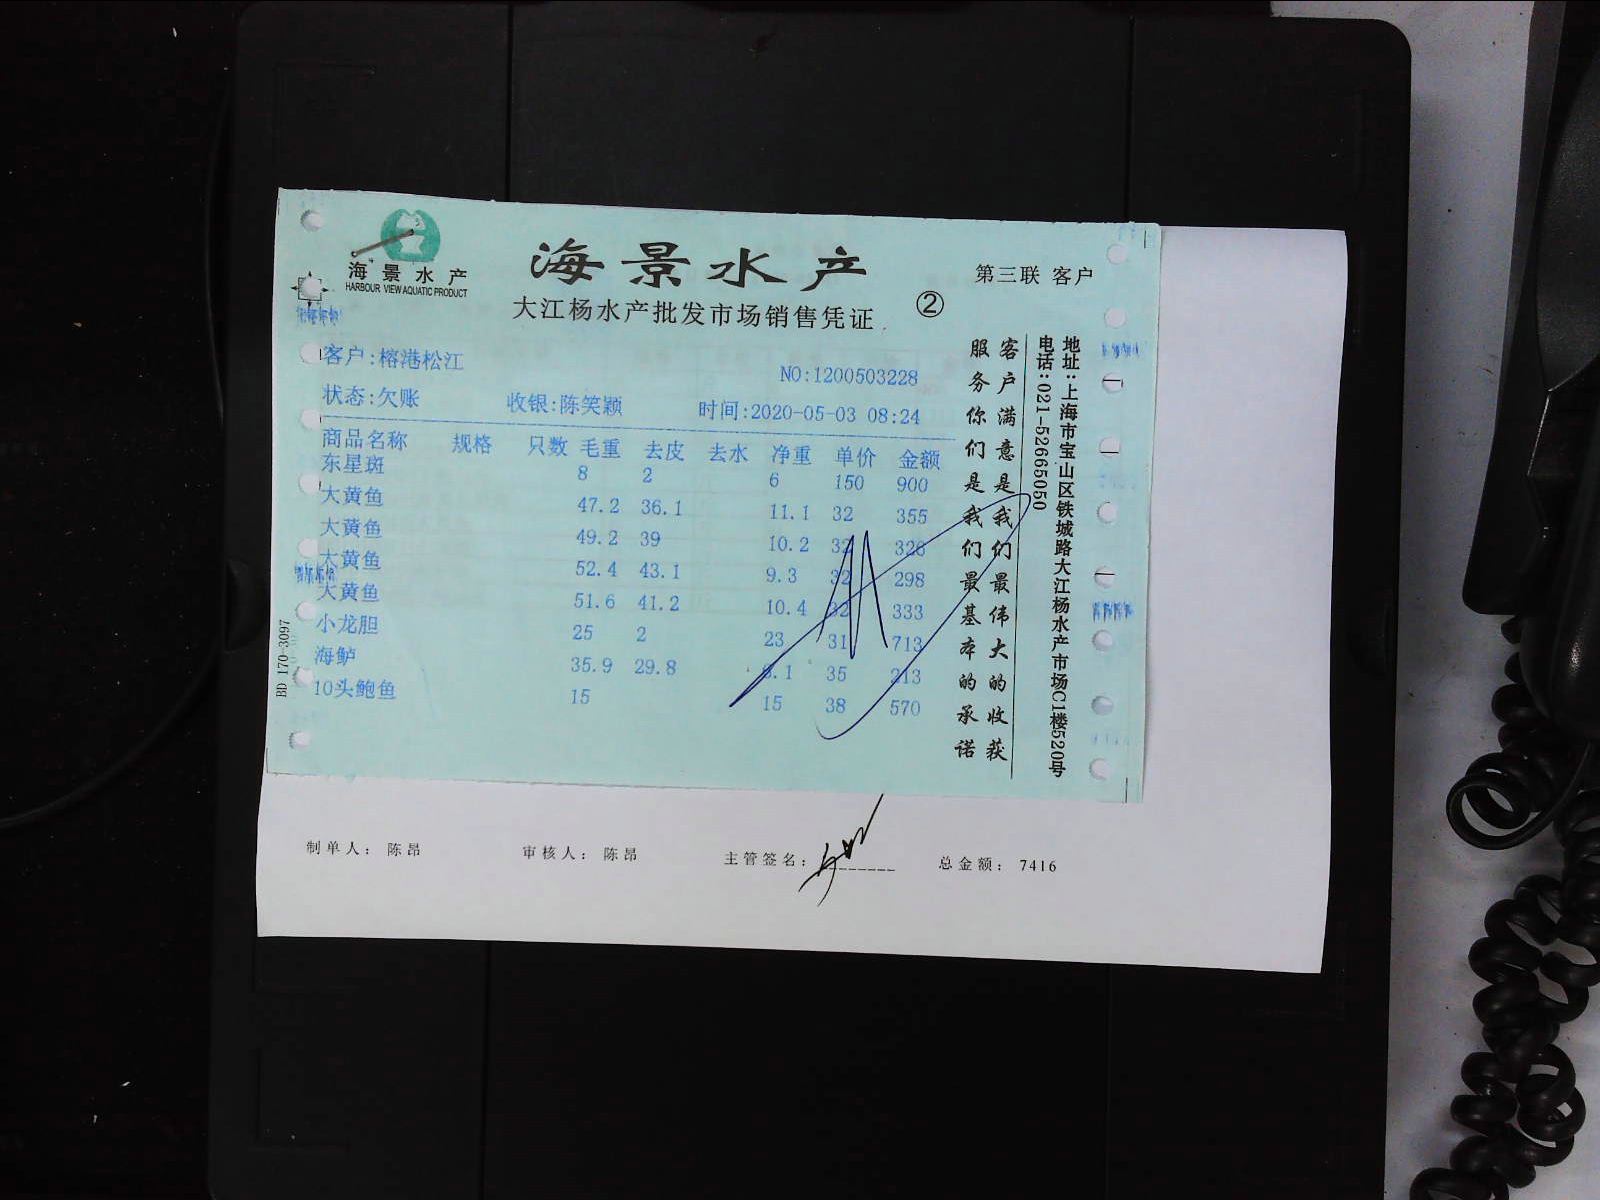 海景水产
HARBOUR VIEW AQUATIC PRODUCT
海景水产
大江杨水产批发市场销售凭证
②
第三联 客户
客户:榕港松江
NO:1200503228
状态:欠账 收银:陈笑颖 时间:2020-05-03 08:24
商品名称 规格 只数 毛重 去皮 去水 净重 单价 金额
东星斑 8 2 6 150 900
大黄鱼 47.2 36.1 11.1 32 355
大黄鱼 49.2 39 10.2 32 326
大黄鱼 52.4 43.1 9.3 32 298
大黄鱼 51.6 41.2 10.4 32 333
小龙胆 25 2 23 31 713
海鲈 35.9 29.8 6.1 35 213
10头鲍鱼 15 15 38 570
客户满意是我们最伟大的收获
服务你们是我们最基本的承诺
地址:上海市宝山区铁城路大江杨水产市场C1楼520号
电话:021-52665050
BD 170-3097
制单人: 陈昂 审核人: 陈昂 主管签名: 总金额: 7416